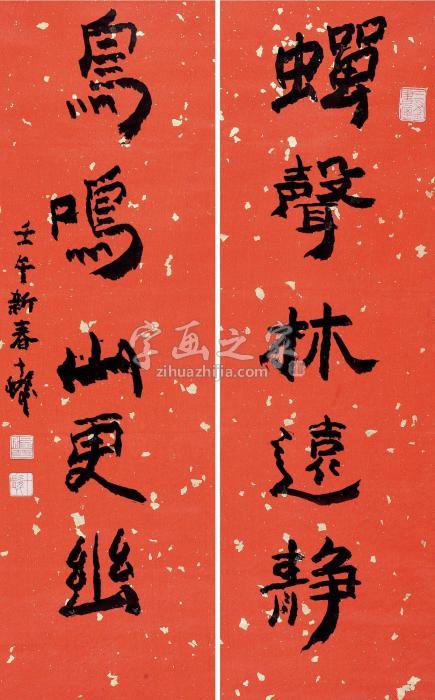 蟬聲林遠靜
鳥鳴山更幽
壬午新春十
字画之家
zihuazhijia.com